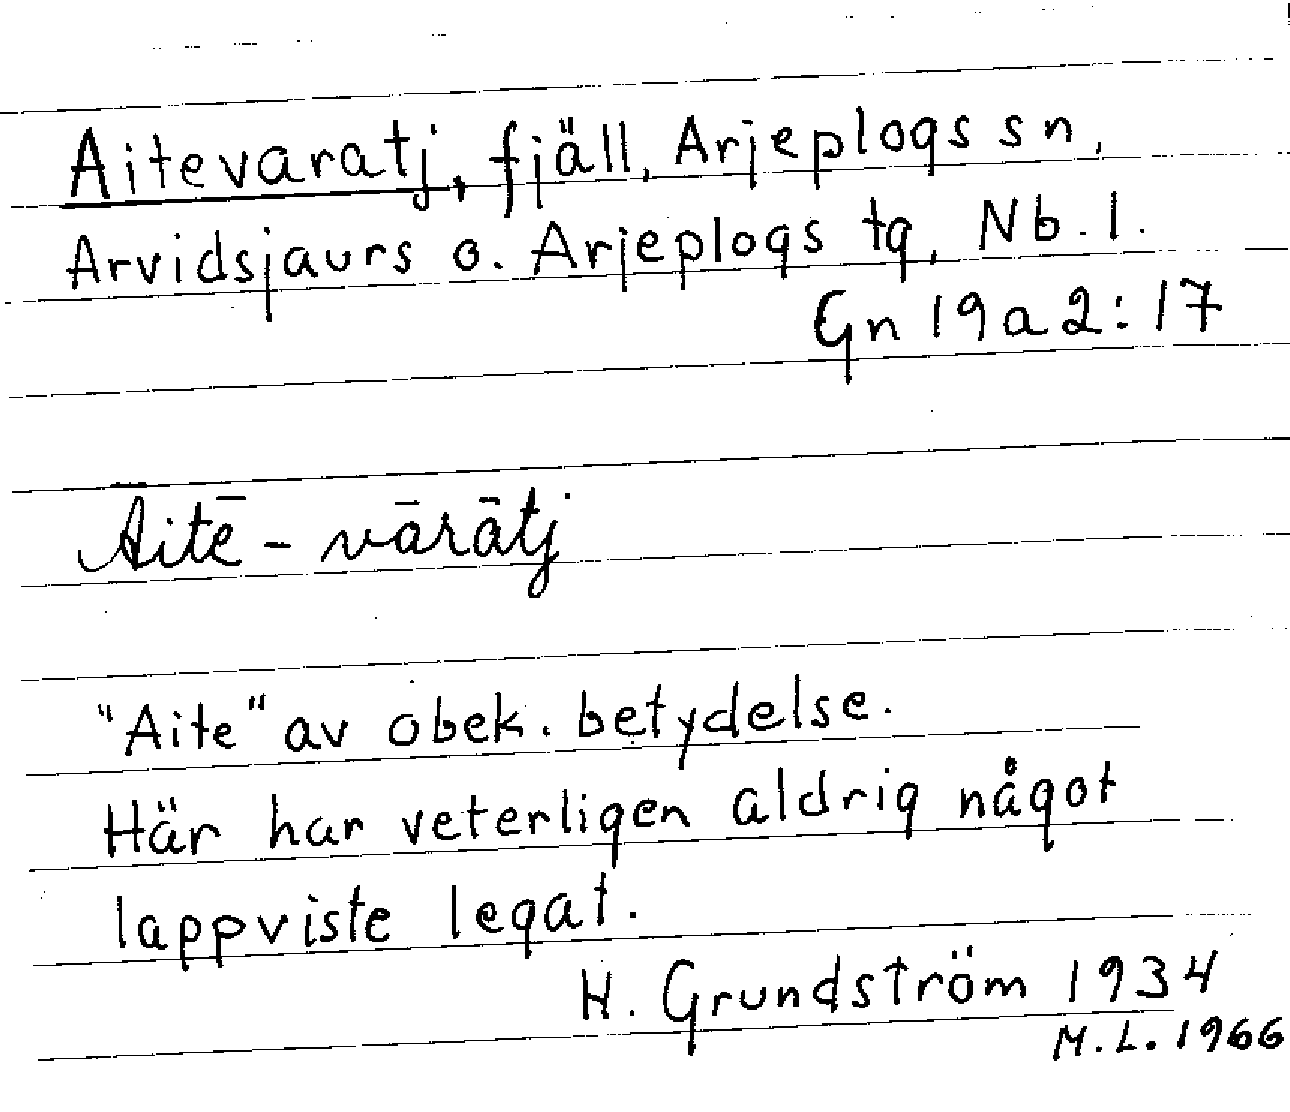 Aitevaratj, fjäll, Arjeplogs sn,
Arvidsjaurs o. Arjeplogs tg, Nb. l.
Gn 19a2:17
Āitē - vārātj
"Aite" av obek. betydelse.
Här har veterligen aldrig något
lappviste legat.
H. Grundström 1934
M.L. 1966